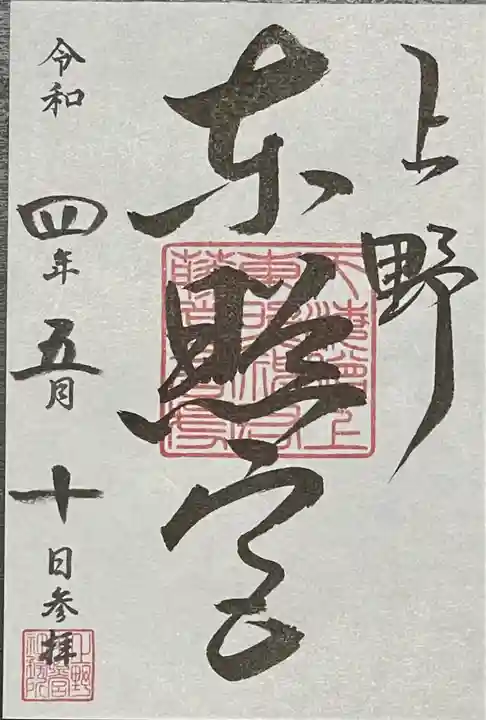 上野
東照宮
令和四年五月十日参拝